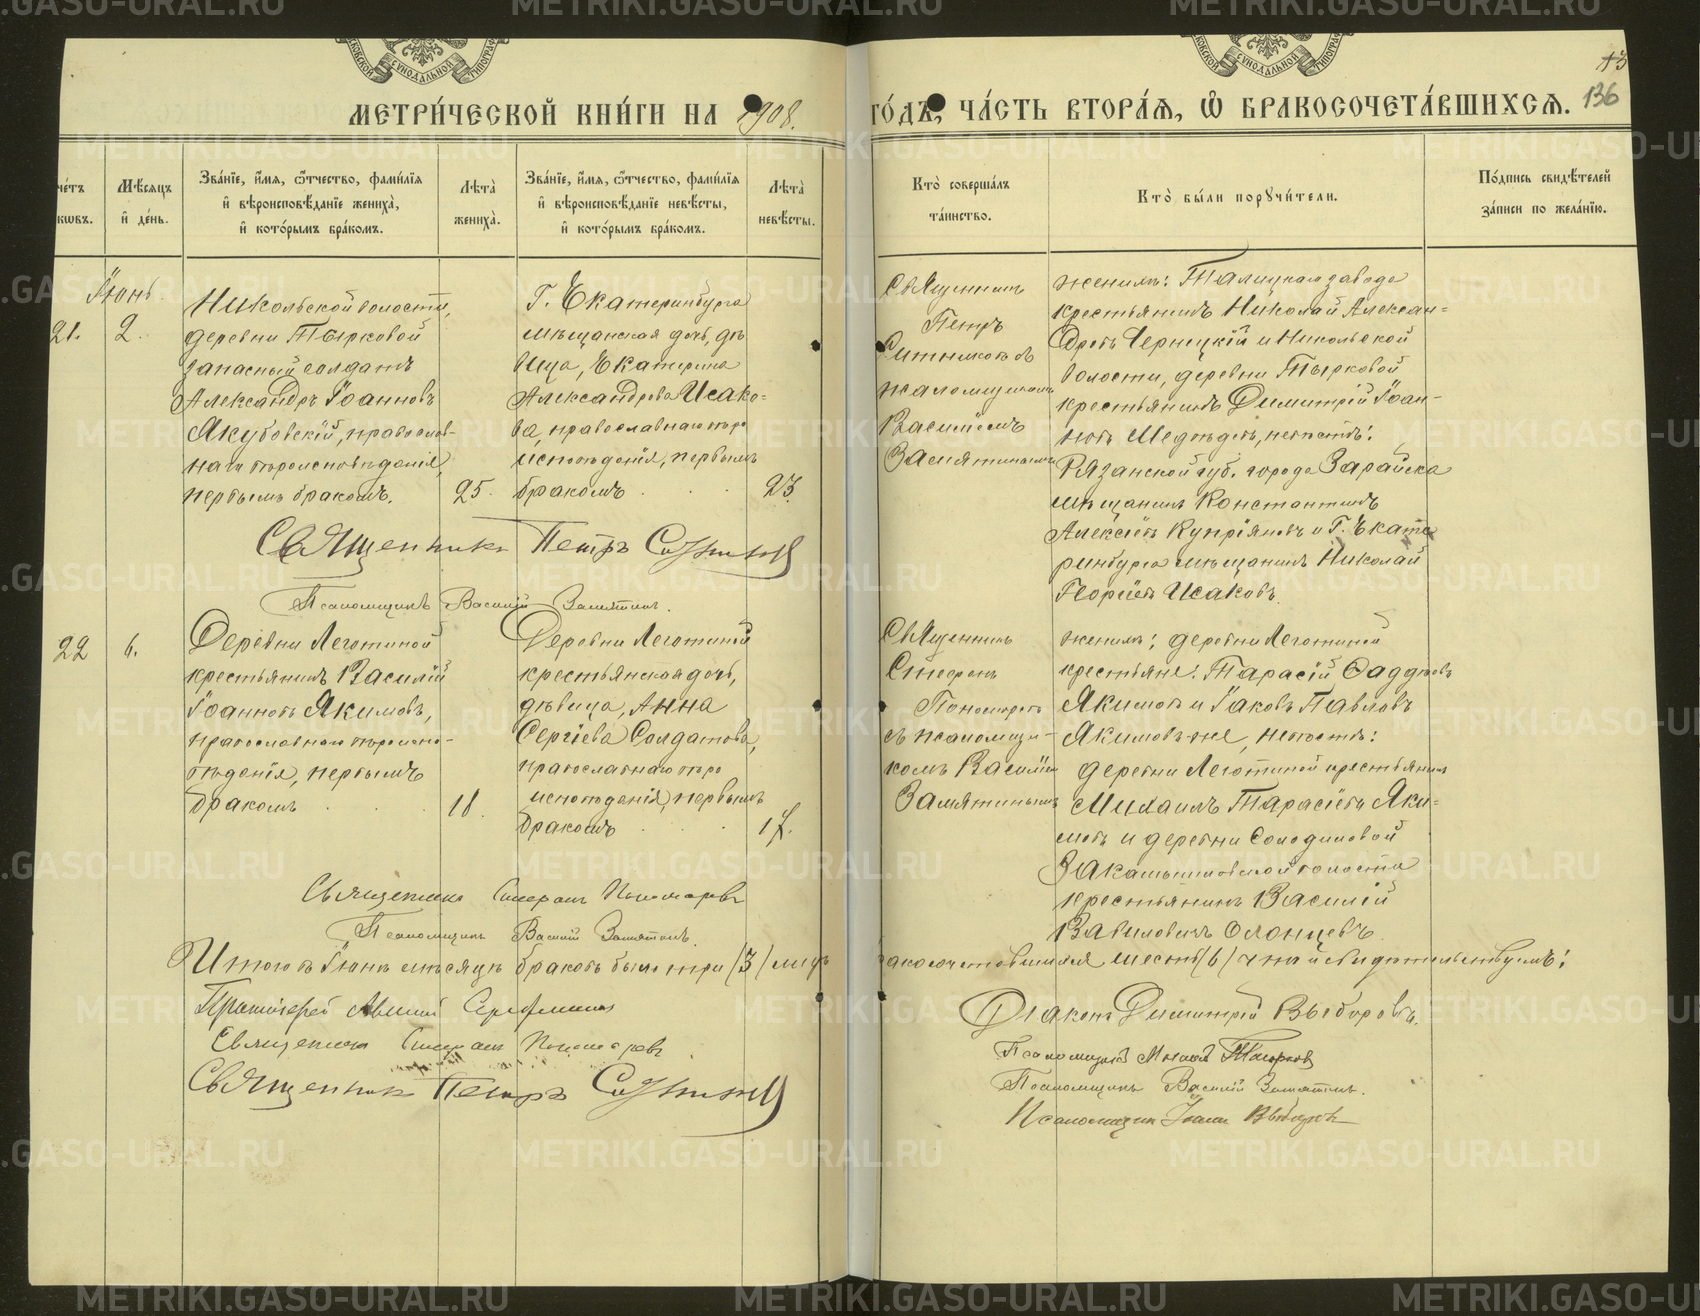 МЕТРИ́ЧЕСКОЙ КНИ́ГИ НА 1908.
ГО́ДЪ, ЧА́СТЬ ВТОРА́Я, Ѡ БРАКОСОЧЕТА́ВШИХСЯ.
136
Мѣ́сяцъ и҆ де́нь.
Зва́нїе, и҆́мя, ѻ҆́тчество, фами́лїя
и҆ вѣроисповѣ́данїе жениха̀,
и҆ кото́рымъ бра́комъ.
Лѣта̀
жениха̀.
Зва́нїе, и҆́мя, ѻ҆́тчество, фами́лїя
и҆ вѣроисповѣ́данїе невѣ́сты,
и҆ кото́рымъ бра́комъ.
Лѣта̀
невѣ́сты.
Кто̀ соверша́лъ
та́инство.
Кто̀ бы́ли порꙋчи́тели.
По́дпись свидѣ́телей
за́писи по жела́нїю.
21.
Іюнь
2.
Никольской волости,
деревни Тырковой
запасный солдатъ
Александръ Іоанновъ
Якубовскій, православ-
наго вѣроисповѣданія,
первымъ бракомъ.
25.
Г. Екатеринбурга
мѣщанская дочь, дѣ
вица, Екатерина
Александрова Исако-
ва, православнаго вѣро
исповѣданія, первымъ
бракомъ
23.
Священникъ
Петръ
Ситниковъ съ
псаломщикомъ
Василіемъ
Замятинымъ
жениху: Талицкаго завода
крестьянинъ Николай Алексан-
дровъ Черницкій и Никольской
волости, деревни Тырковой
крестьянинъ Димитрій Іоан-
новъ Медвѣдевъ, невѣстѣ:
Рязанской губ. города Зарайска
мѣщанинъ Константинъ
Алексіевъ Купріяновъ и Г. Екате
ринбурга мѣщанинъ Николай
Георгіевъ Исаковъ.
Священникъ Петръ Ситниковъ
Псаломщикъ Василій Замятинъ.
22
6.
Деревни Леготиной
крестьянинъ Василій
Іоанновъ Якимовъ,
православнаго вѣроиспо-
вѣданія, первымъ
бракомъ
18.
Деревни Леготиной
крестьянская дочь,
дѣвица, Анна
Сергіева Солдатова,
православнаго вѣро
исповѣданія, первымъ
бракомъ
17.
Священникъ
Стефанъ
Пономаревъ
съ псаломщи-
комъ Василіем
Замятинымъ
жениху: деревни Леготиной
крестьяне: Тарасій Фаддѣевъ
Якимовъ и Іаковъ Павловъ
Якимовъ-же, невѣстѣ:
деревни Леготиной крестьянин
Михаилъ Тарасіевъ Яки-
мовъ и деревни Солодиловой
Закамышловской волости
крестьянинъ Василій
Вавиловичъ Олонцевъ.
Священникъ Стефанъ Пономаревъ
Псаломщикъ Василій Замятинъ.
Итого въ Іюнѣ мѣсяцѣ браковъ было три (3) лицъ бракосочетавшихся шесть (6) въ чемъ и свидѣтельствуемъ:
Протоіерей
Священникъ Стефанъ Пономаревъ
Священникъ Петръ Ситниковъ
Діаконъ Димитрій Выборовъ.
Псаломщикъ
Псаломщикъ Василій Замятинъ.
Псаломщикъ
METRIKI.GASO-URAL.RU